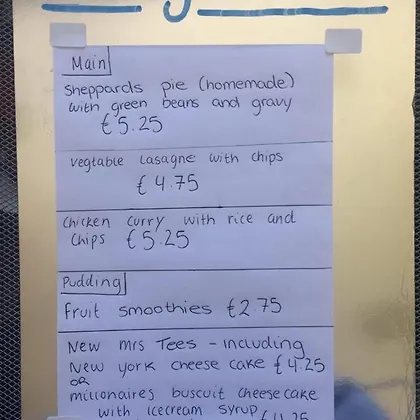 Main
Sheppards pie (homemade)
with green beans and gravy
£5.25
vegtable Lasagne with chips
£4.75
chicken curry with rice and
chips £5.25
Pudding
fruit smoothies £2.75
New mrs Tees - including
New york cheese cake £4.25
OR
millonaires buscuit cheesecake
with icecream syrup £4.25